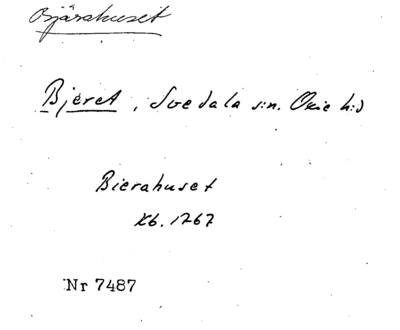 Bjärahuset
Bjeret, Svedala s:n. Oxie h:d
Bierahuset
Kb. 1767
Nr 7487